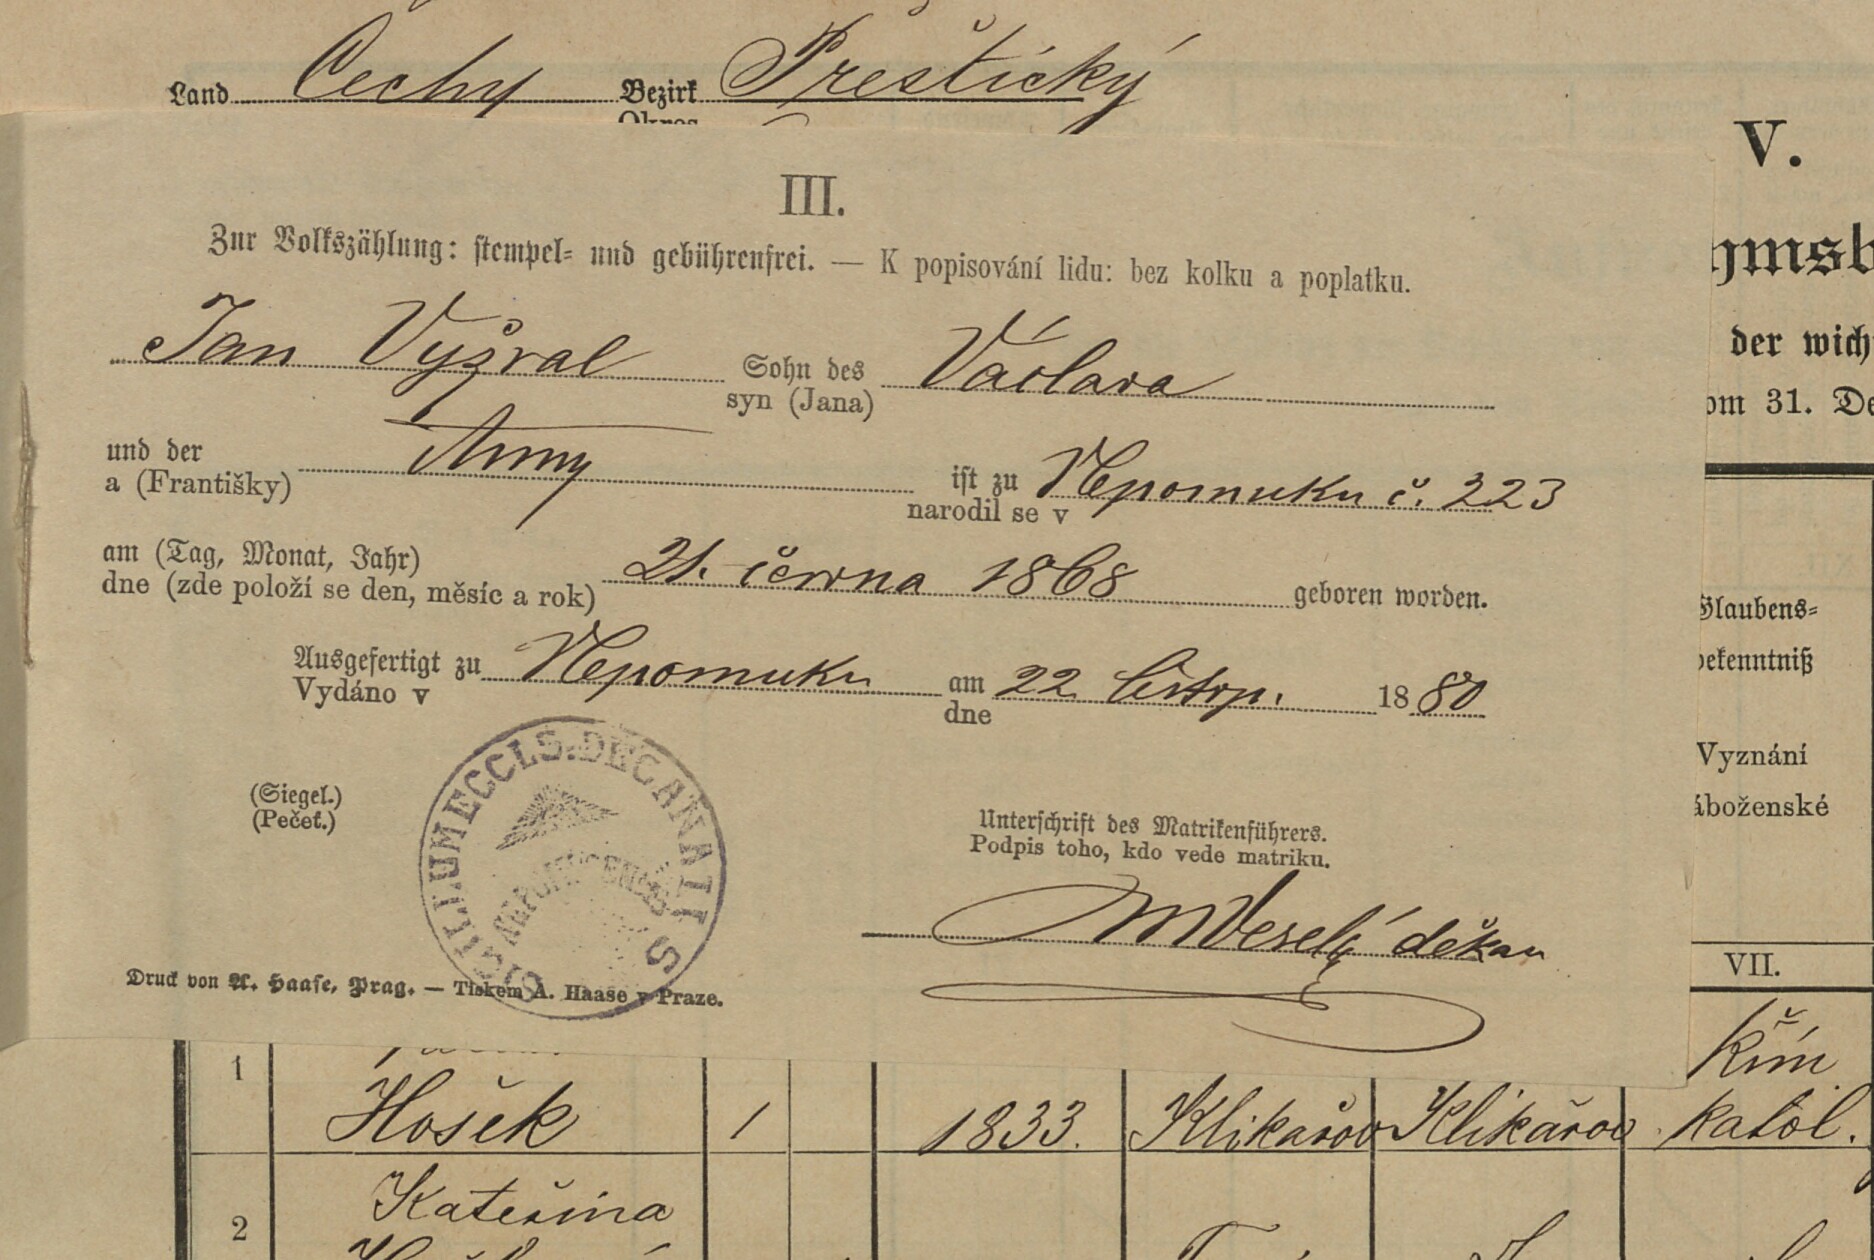 Land Čechy Bezirk Přeštický
Okres
V.
III.
Zur Volkszählung: stempel- und gebührenfrei. — K popisování lidu: bez kolku a poplatku.
der wich
om 31. De
Jan Vyzral Sohn des Václava
syn (Jana)
und der Anny ist zu Nepomuku č. 223
a (Františky) narodil se v
am (Tag, Monat, Jahr) 21. června 1868 geboren worden.
dne (zde položí se den, měsíc a rok)
Glaubens-
bekenntniß
Ausgefertigt zu Nepomuku am 22 listop. 1880
Vydáno v dne
Vyznání
áboženské
(Siegel.)
(Pečeť.)
SIGILLUM ECCLS. DECANATIS
NEPOMUCENSIS
Unterschrift des Matrikenführers.
Podpis toho, kdo vede matriku.
Veselý děkan
VII.
Druck von A. Haase, Prag. — Tiskem A. Haase v Praze.
řím
1 Hošek 1 1833. Klikařov Klikařov katol.
2 Kateřina